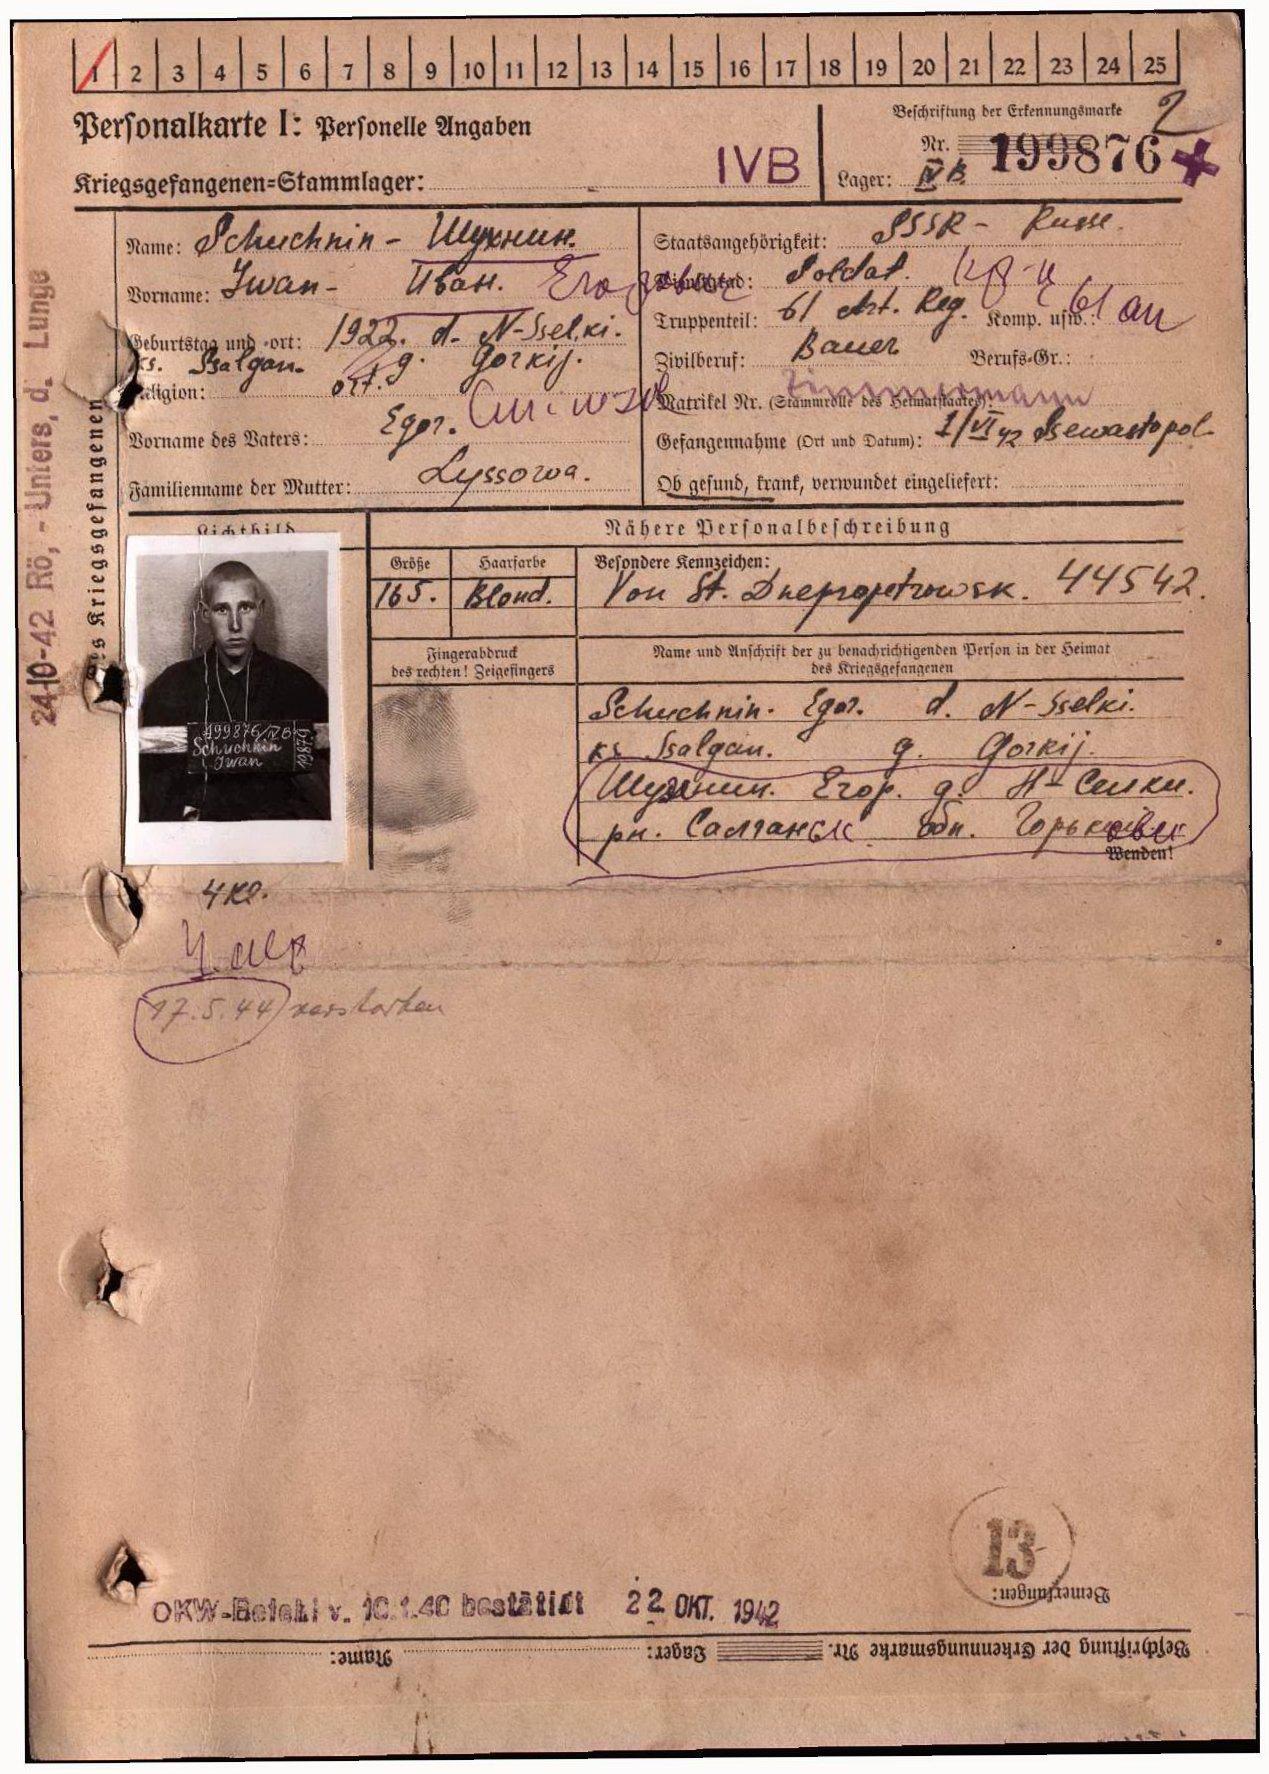 1 2 3 4 5 6 7 8 9 10 11 12 13 14 15 16 17 18 19 20 21 22 23 24 25
Personalkarte I: Personelle Angaben
Beschriftung der Erkennungsmarke
2
Nr. 199876
Kriegsgefangenen-Stammlager: IVB
Lager: IVB
Name: Schuchnin - Шухнин.
Vorname: Iwan - Иван. Егорович
Geburtstag und -ort: 1922. d. N-Sselki.
ks. Ssalgan. g. Gorkij.
Religion: ort.
Vorname des Vaters: Egor.
Familienname der Mutter: Lyssowa.
Staatsangehörigkeit: SSSR - Russe.
Dienstgrad: Soldat. кр-ц
Truppenteil: 61 Art. Reg. Komp. usw.: 61 ап
Zivilberuf: Bauer Berufs-Gr.:
Zimmermann
Matrikel Nr. (Stammrolle des Heimatstaates):
Gefangennahme (Ort und Datum): 1/VI 42 Ssewastopol
Ob gesund, krank, verwundet eingeliefert:
des Kriegsgefangenen
24-10-42 Rö, - Unters, d. Lunge
Lichtbild
Nähere Personalbeschreibung
Größe Haarfarbe Besondere Kennzeichen:
165. Blond. Von St. Dnepropetrowsk. 44542.
Fingerabdruck
des rechten! Zeigefingers
Name und Anschrift der zu benachrichtigenden Person in der Heimat
des Kriegsgefangenen
199876/IVB
Schuchnin
Iwan
19879
Schuchnin. Egor. d. N-Sselki.
ks Ssalgan. g. Gorkij.
Шухнин. Егор. д. Н-Силки.
рн. Салганск обл. Горьковск
Wenden!
4 Kl.
17.5.44 verstorben
13
Bemerkungen:
OKW-Befehl v. 10.1.40 bestätigt 22 OKT. 1942
Beschriftung der Erkennungsmarke Nr. Lager: Name: